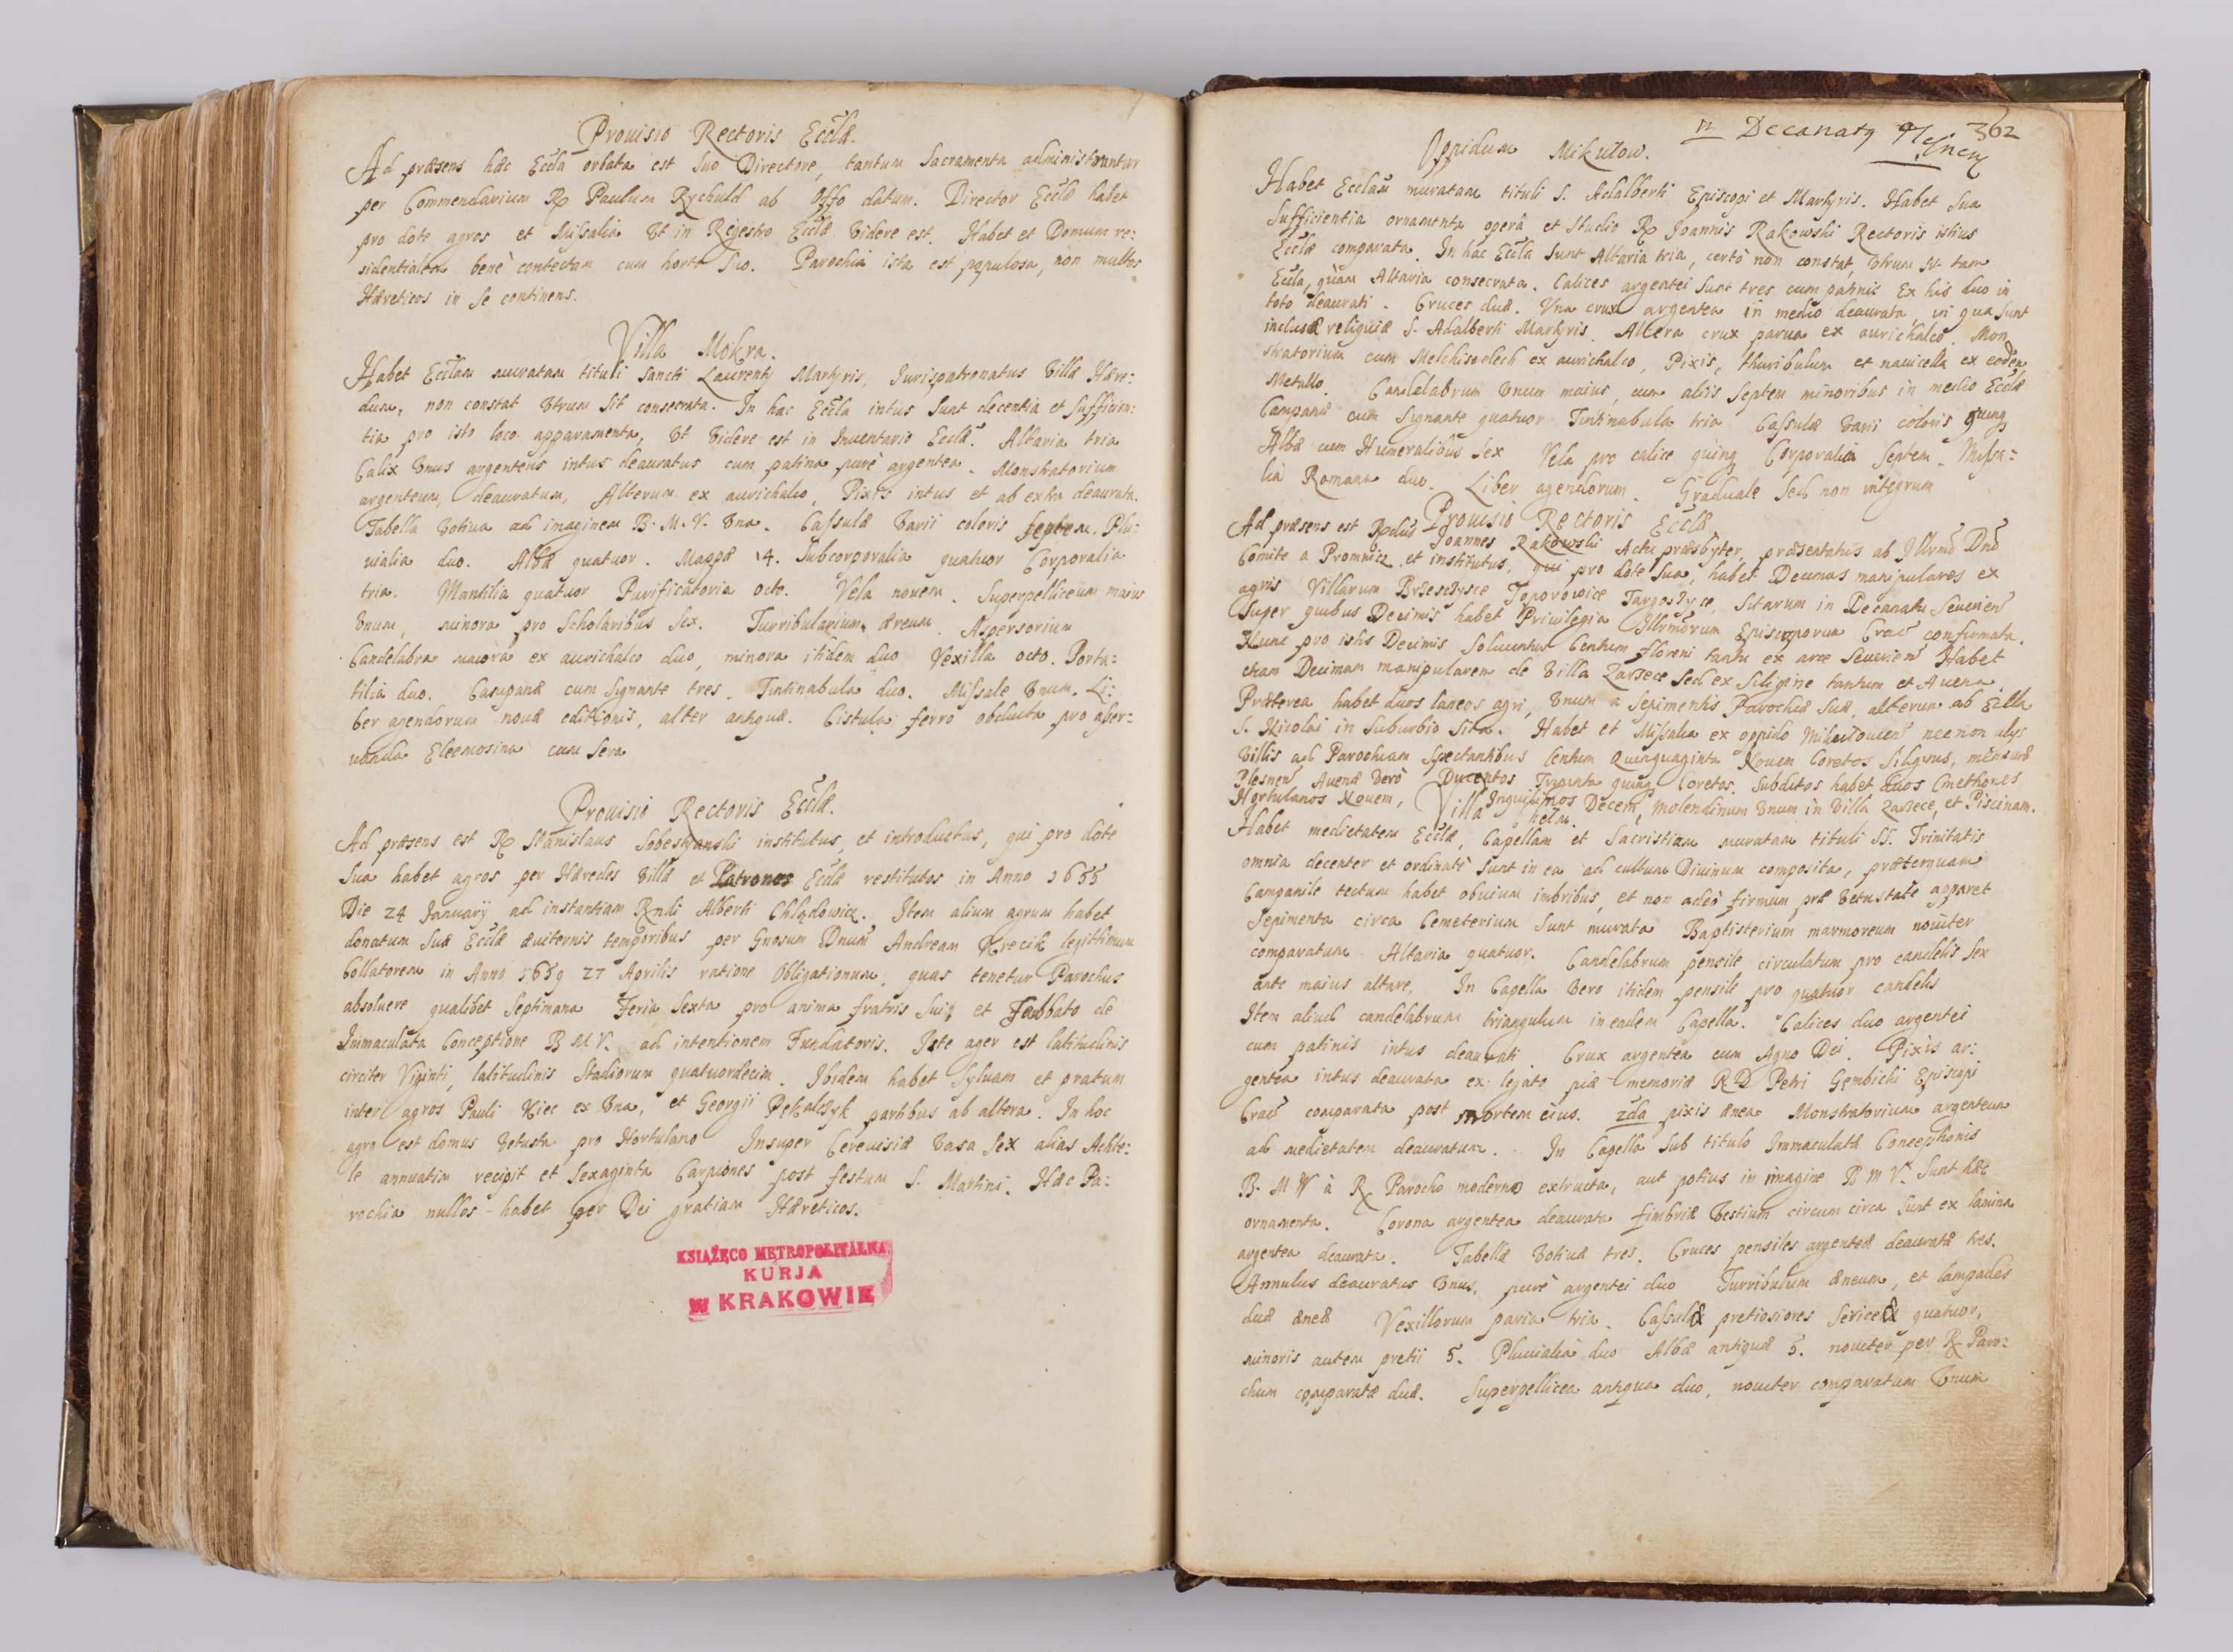 Prouisio Rectoris Ecclæ.
Ad præsens hæc Eccla orbata est suo Directore, tantum Sacramenta administrantur
per Commendarium R. Paulum Rychuld ab Offo datum. Director Ecclæ habet
pro dote agros et Missalia Vt in Regestro Ecclæ Videre est. Habet et Domum re:
sidentialem benè contectam cum horto suo. Parochia ista est populosa, non multos
Hæreticos in se continens.
Villa Mokra.
Habet Ecclam muratam tituli Sancti Laurentÿ Martyris, Jurispatronatus Villæ Hære:
dum, non constat Vtrum sit consecrata. In hac Eccla intus sunt decentia et sufficien:
tia pro isto loco apparamenta, Vt Videre est in Inuentario Ecclæ. Altaria tria
Calix Vnus argenteus intus deauratus cum patina purè argentea. Monstratorium
argenteum, deauratum, Alterum ex aurichalco, Pixis intus et ab extra deaurata.
Tabella Votiua ad imaginem B. M. V. Vna. Casulæ Varii coloris septem. Plu:
uialia duo. Albæ quatuor. Mappæ 14. Subcorporalia quatuor Corporalia
tria. Mantilia quatuor Purificatoria octo. Vela nouem. Superpelliceum maius
Vnum, minora pro Scholaribus sex. Turribularium æreum. Aspersorium
Candelabra maiora ex aurichalco duo, minora itidem duo Vexilla octo. Porta:
tilia duo. Campanæ cum signante tres. Tintinabula duo. Missale Vnum. Li:
ber agendorum nouæ editionis, alter antiquæ. Cistula ferro obducta pro asser:
uanda Eleemosina cum sera
Prouisio Rectoris Ecclæ.
Ad præsens est R. Stanislaus Sobestyanski institutus, et introductus, qui pro dote
sua habet agros per Hæredes Villæ et Patronos Ecclæ restitutos in Anno 1655
Die 24 Januarÿ ad instantiam Rndi Alberti Chlądowicz. Item alium agrum habet
donatum suæ Ecclæ æuiternis temporibus per Gnosum Dnum Andream Krecik legitimum
Collatorem in Anno 1659 27 Aprilis ratione Obligationum, quas tenetur Parochus
absoluere qualibet septimana Feria sexta pro anima fratris sui, et Sabbato de
Immaculata Conceptione B M V. ad intentionem Fundatoris. Iste ager est latitudinis
circiter Viginti, latitudinis Stadiorum quatuordecim. Ibidem habet Syluam et pratum
inter agros Pauli Kiec ex Vna, et Georgii Pekalczyk partibus ab altera. In hoc
agro est domus Vetusta pro Hortulano Insuper Cereuisiæ Vasa sex alias Achte:
le annuatim recipit et sexaginta Carpiones post festum S. Martini. Hæc Pa:
rochia nullos habet per Dei gratiam Hæreticos.
KSIĄŻĘCO METROPOLITALNA
KURJA
W KRAKOWIE
n Decanatq 362
Oppidum Mikułow.
Habet Ecclam muratam tituli S. Adalberti Episcopi et Martyris. Habet sua
sufficientia ornamenta operâ et studio R. Joannis Rakowski Rectoris istius
Ecclæ comparata. In hac Eccla sunt Altaria tria, certò non constat, Vtrum sit tam
Eccla, quàm Altaria consecrata. Calices argentei sunt tres cum patinis Ex his duo in
toto deaurati. Cruces duæ. Vna crux argentea in medio deaurata, in qua sunt
inclusæ reliquiæ S. Adalberti Martyris. Altera crux parua ex aurichalco. Mon
stratorium cum Melchisedech ex aurichalco, Pixis, thuribulum et nauicella ex eodem
Metallo. Candelabrum Vnum maius, cum aliis septem minoribus in medio Ecclæ
Campanæ cum signante quatuor Tintinabula tria Casulæ Varii coloris quinq
Albæ cum Humeralibus sex Vela pro calice quinq Corporalia septem. Missa:
lia Romana duo. Liber agendorum. Graduale sed non integrum
Prouisio Rectoris Ecclæ
Ad præsens est Rndus Joannes Rakowski Actu præsbyter, præsentatus ab Illrmo Dno
Comite a Promnicz et institutus, qui pro dote sua, habet Decimas manipulares ex
agris Villarum Toporowice Targoszyce, Sitarum in Decanatu Seuerien
Super quibus Decimis habet Priuilegia Illrmorum Episcoporum Crac confirmata.
Nunc pro istis Decimis soluuntur Centum floreni tantu ex arce Seuerien Habet
etiam Decimam manipularem de Villa Zarzece sed ex siligine tantum et Auena
Præterea habet duos laneos agri, Vnum a sepimentis Parochiæ suæ, alterum ab Eccla
S. Nicolai in suburbio sita. Habet et Missalia ex oppido nec non alÿs
Villis ad Parochiam spectantibus Centum Quinquaginta Nouem Coretos Siliginis, mensuræ
Plesnen Auenæ Verò Ducentos Triginta quinq Coretos. Subditos habet duos Cmethones
Hortulanos Nouem, Inquilinos Decem, Molendinum Vnum in Villa Zarzece, et Piscinam.
Villa Chelm.
Habet medietatem Ecclæ, Capellam et Sacristiam muratam tituli SS. Trinitatis
omnia decenter et ordinatè sunt in ea ad cultum Diuinum composita, præterquam
Campanile tectum habet obuium imbribus, et non adeò firmum præ Vetustate apparet
Sepimenta circa Cemeterium sunt murata Baptisterium marmoreum nouiter
comparatum Altaria quatuor. Candelabrum pensile circulatum pro candelis sex
ante maius altare, In Capella Vero itidem pensile pro quatuor candelis
Item aliud candelabrum triangulum in eadem Capella. Calices duo argentei
cum patinis intus deaurati. Crux argentea cum Agno Dei. Pixis ar:
gentea intus deaurata ex legato piæ memoriæ R D Petri Gembicki Episcopi
Crac comparata post mortem eius. 2da pixis ænea Monstratorium argenteum
ad medietatem deauratum. In Capella sub titulo Immaculatæ Conceptionis
B. M V à R. Parocho moderno extructa, aut potius in imagine B M V. sunt hæc
ornamenta. Corona argentea deaurata fimbriæ Vestium circum circa sunt ex lamina
argentea deaurata. Tabellæ Votiuæ tres. Cruces pensiles argenteæ deauratæ tres.
Annulus deauratus Vnus, purè argentei duo Turribulum æneum, et lampades
duæ æneæ Vexillorum paria tria. Casulæ pretiosiores sericeæ quatuor,
minoris autem pretii 5. Pluuialia duo Albæ antiquæ 5. nouiter per R. Paro:
chum comparatæ duæ. Superpellicea antiqua duo, nouiter comparatum Vnum